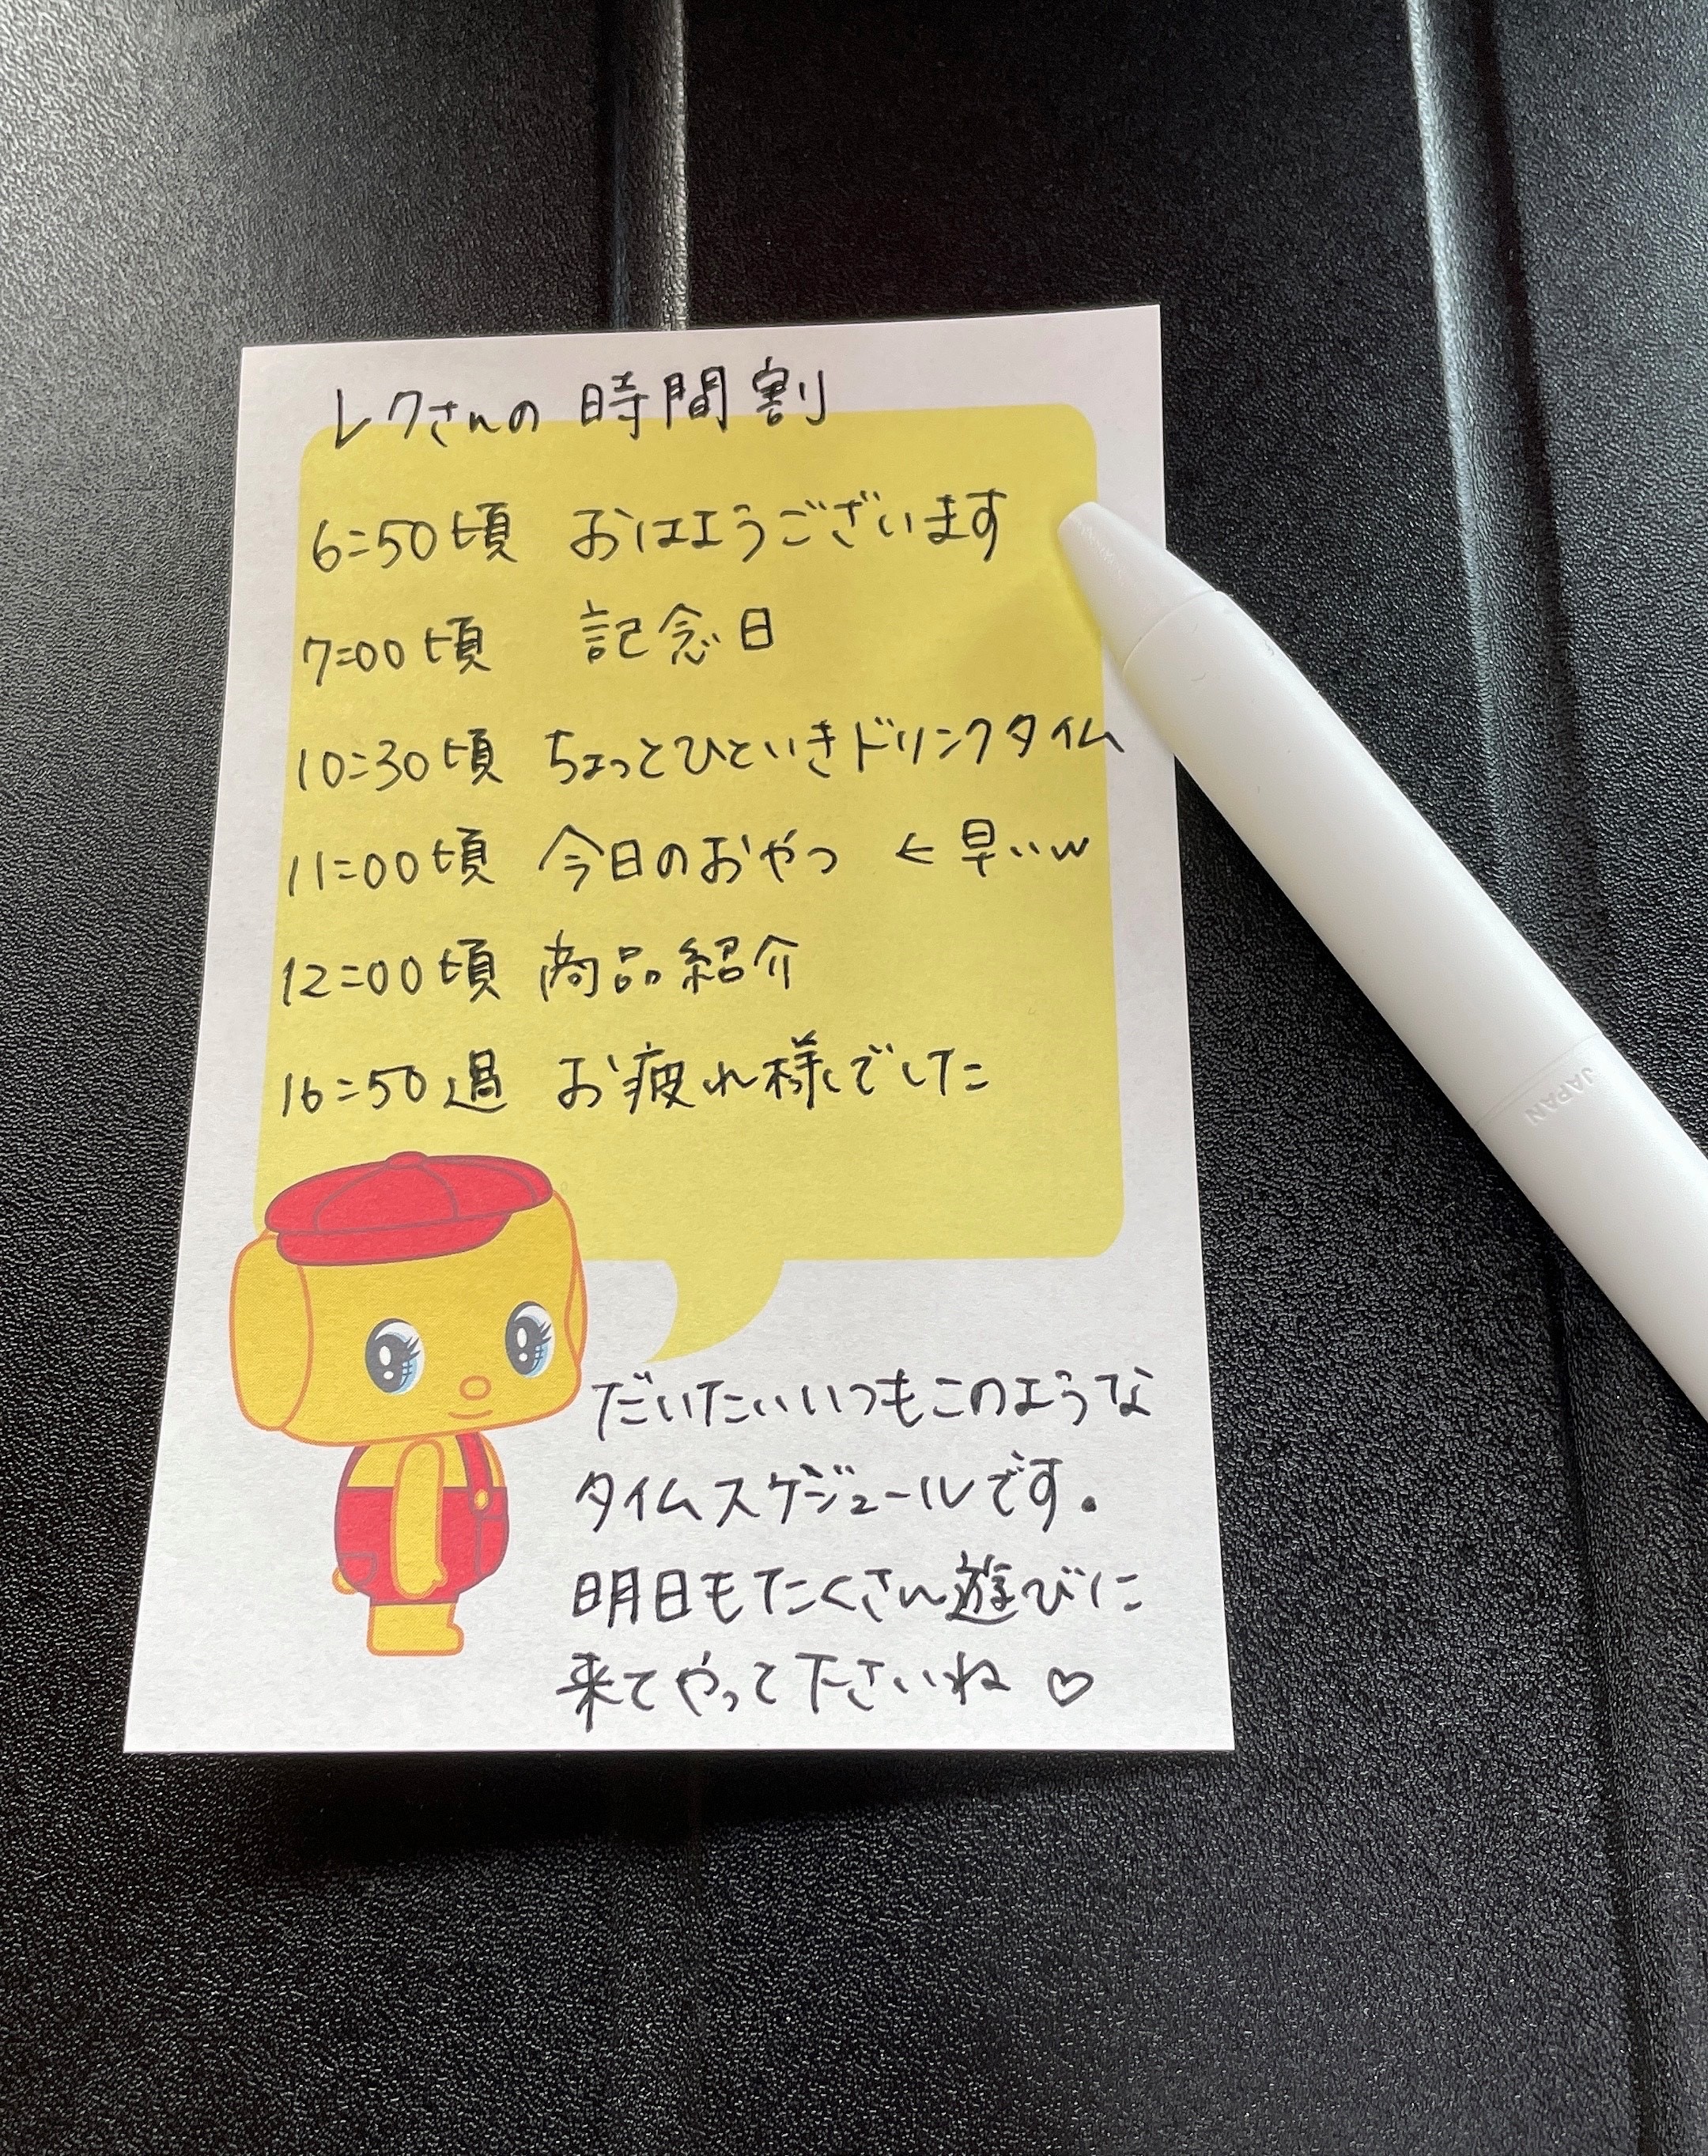 レクさんの時間割
6:50頃 おはようございます
7:00頃 記念日
10:30頃 ちょっとひといきドリンクタイム
11:00頃 今日のおやつ ← 早いw
12:00頃 商品紹介
16:50過 お疲れ様でした
だいたいいつもこのような
タイムスケジュールです。
明日もたくさん遊びに
来てやって下さいね ♡
JAPAN